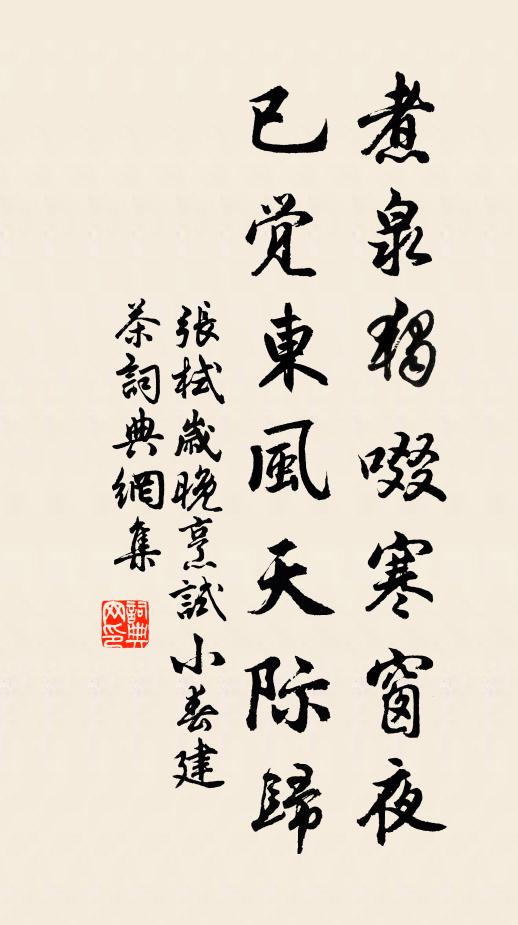 煮泉獨啜寒窗夜
已觉東風天际歸
張栻歲晚烹試小春建
茶詞典網集
詞典网印